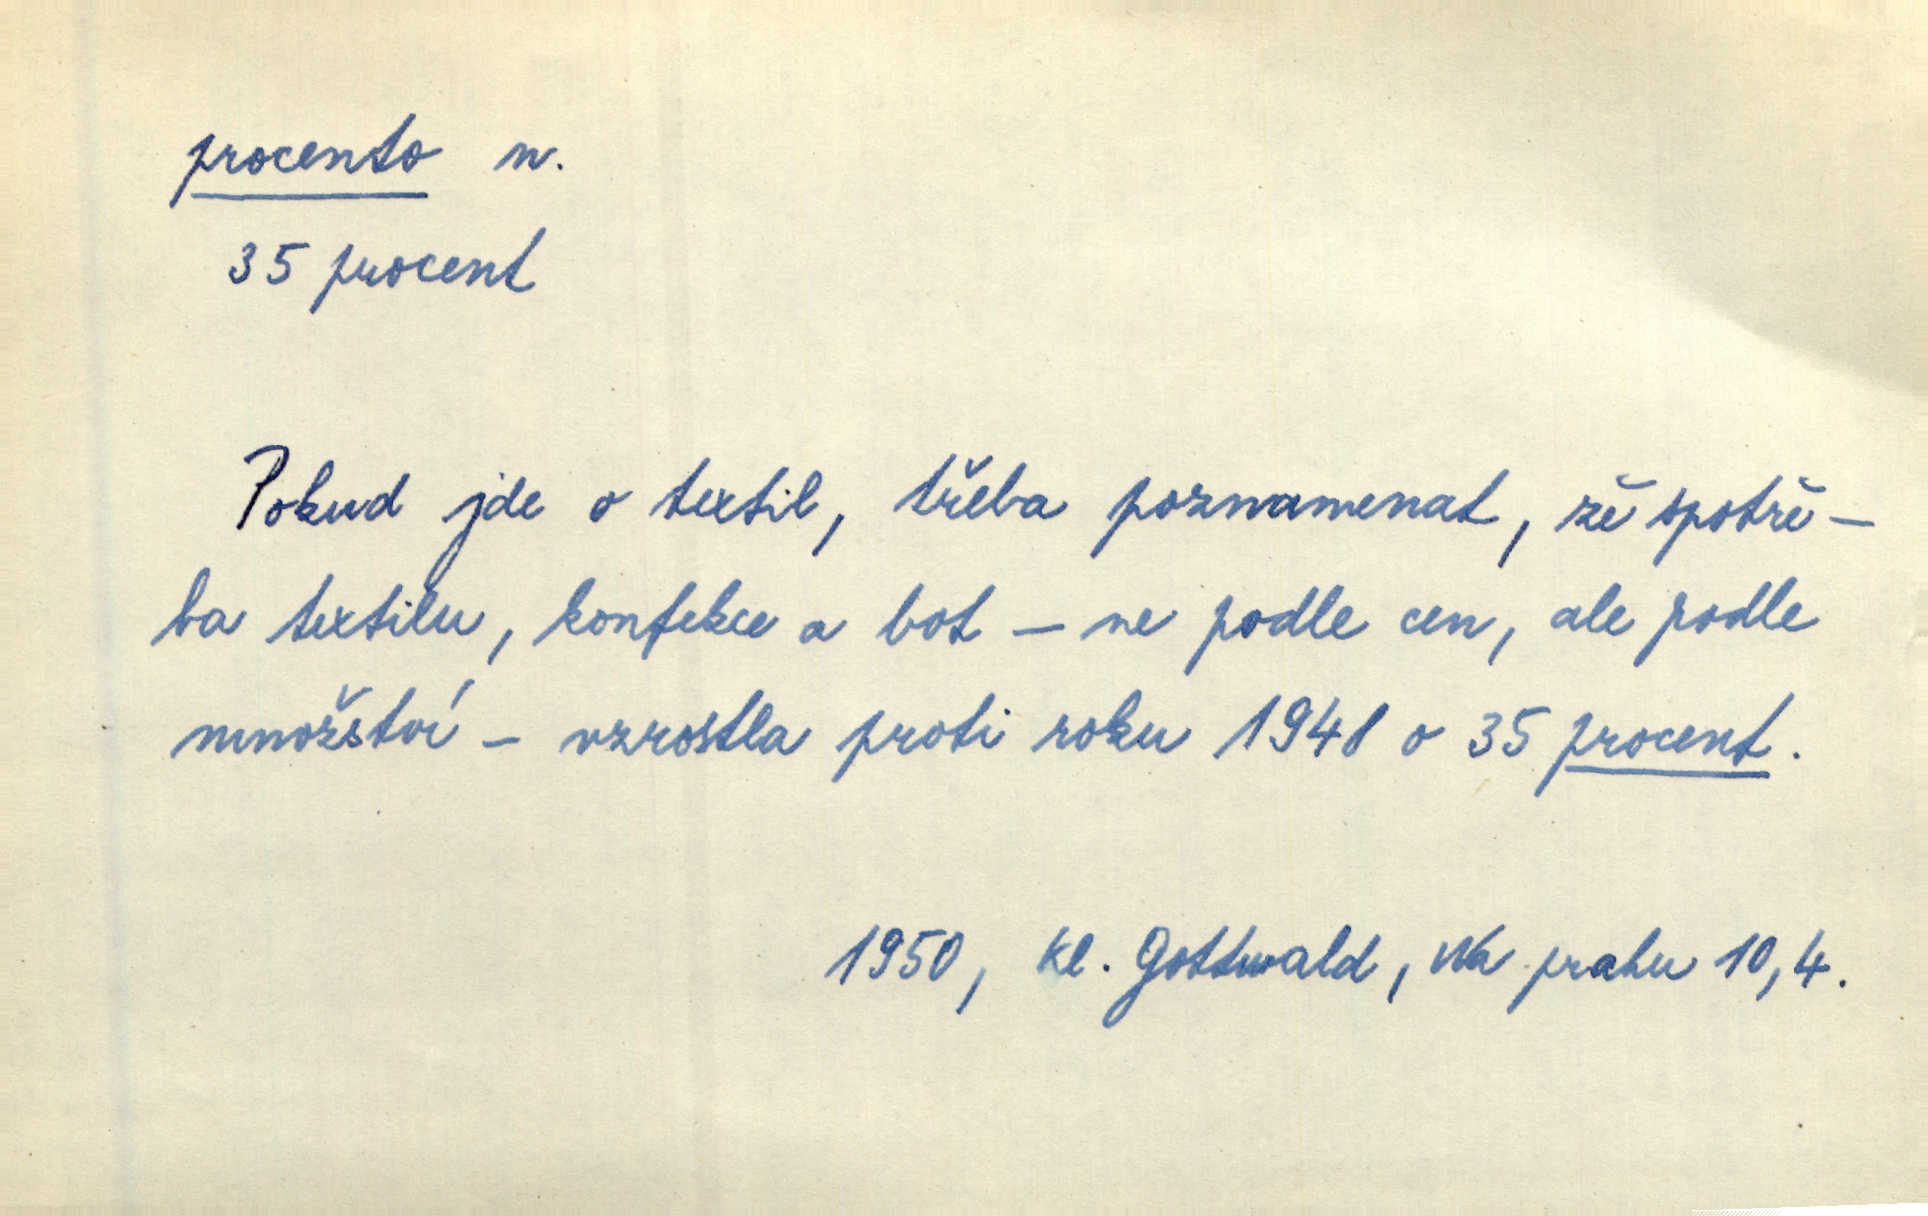 procento n.
35 procent
Pokud jde o textil, třeba poznamenat, že spotře-
ba textilu, konfekce a bot – ne podle cen, ale podle
množství – vzrostla proti roku 1948 o 35 procent.
1950, Kl. Gottwald, Na prahu 10,4.